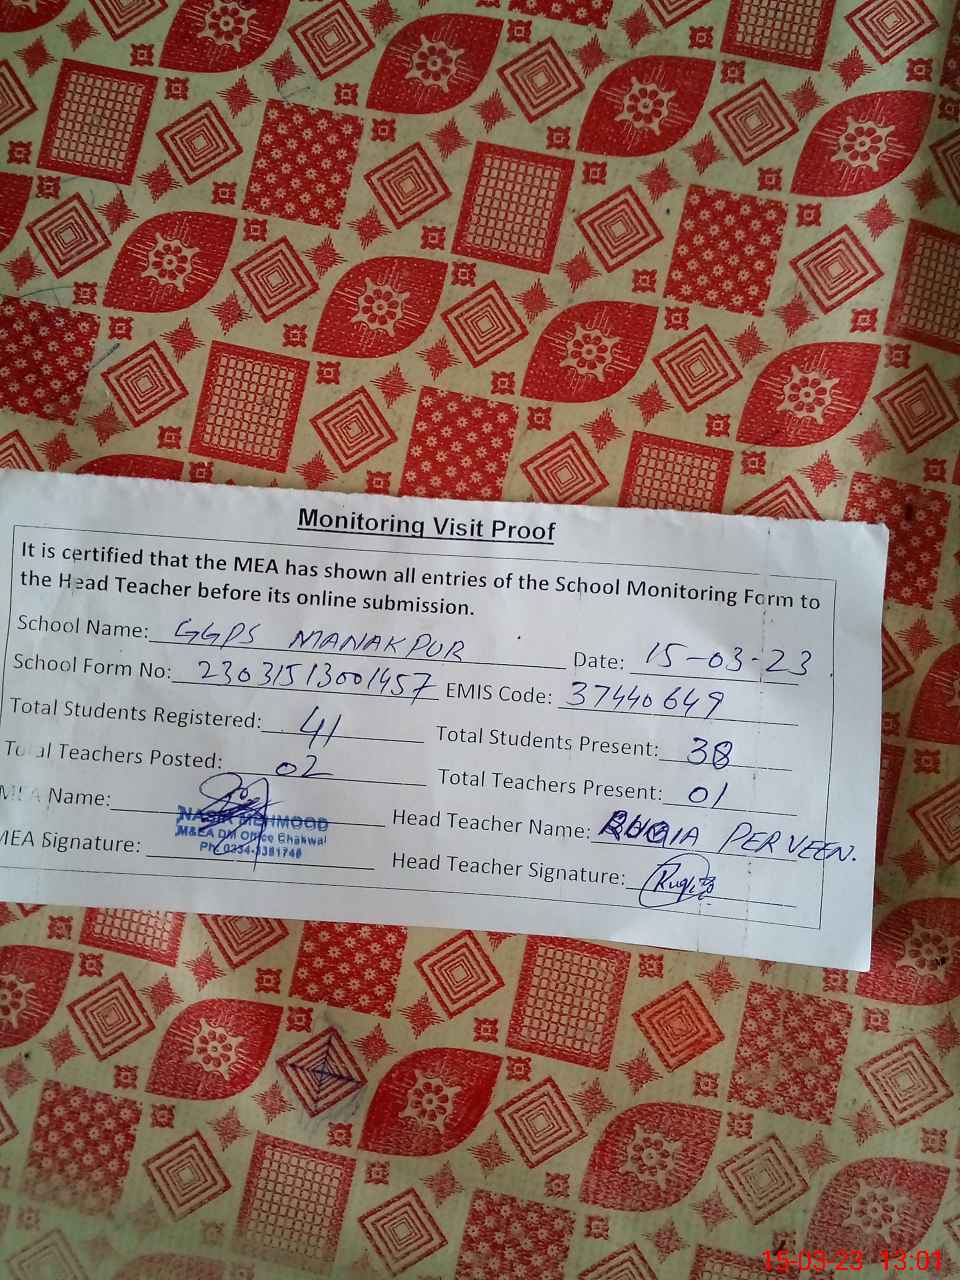 Monitoring Visit Proof
It is certified that the MEA has shown all entries of the School Monitoring Form to
the Head Teacher before its online submission.
School Name: GGPS MANAKPUR Date: 15-03-23
School Form No: 23031513001457 EMIS Code: 37440649
Total Students Registered: 41 Total Students Present: 38
Total Teachers Posted: 02 Total Teachers Present: 01
MEA Name: Head Teacher Name: RUQIA PERVEEN.
NASIR MEHMOOD
M&EA DM Office Chakwal
MEA Signature: Head Teacher Signature: Ruqia
15-03-23 13:01